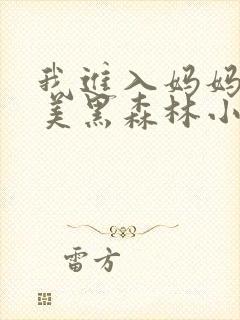 我进入妈妈
美黑森林小
雷方